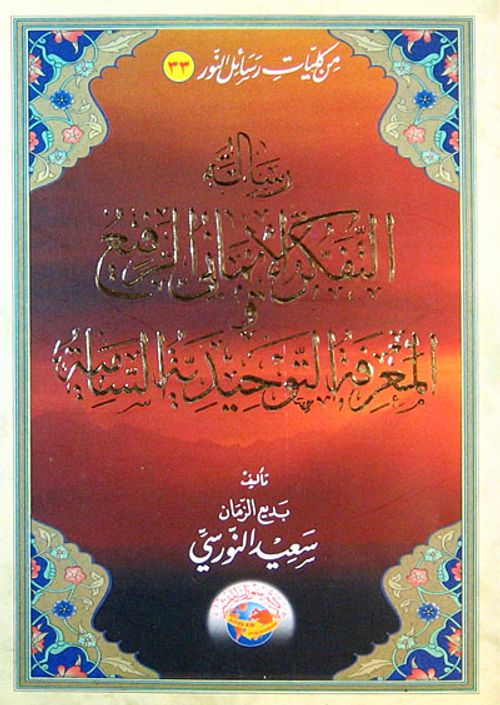 من كليّات رسائل النّور ٣٣
رسالة
التفكر الإيماني الرفيع
في
المعرفة التوحيدية السامية
تأليف
بديع الزمان
سعيد النّورسيّ